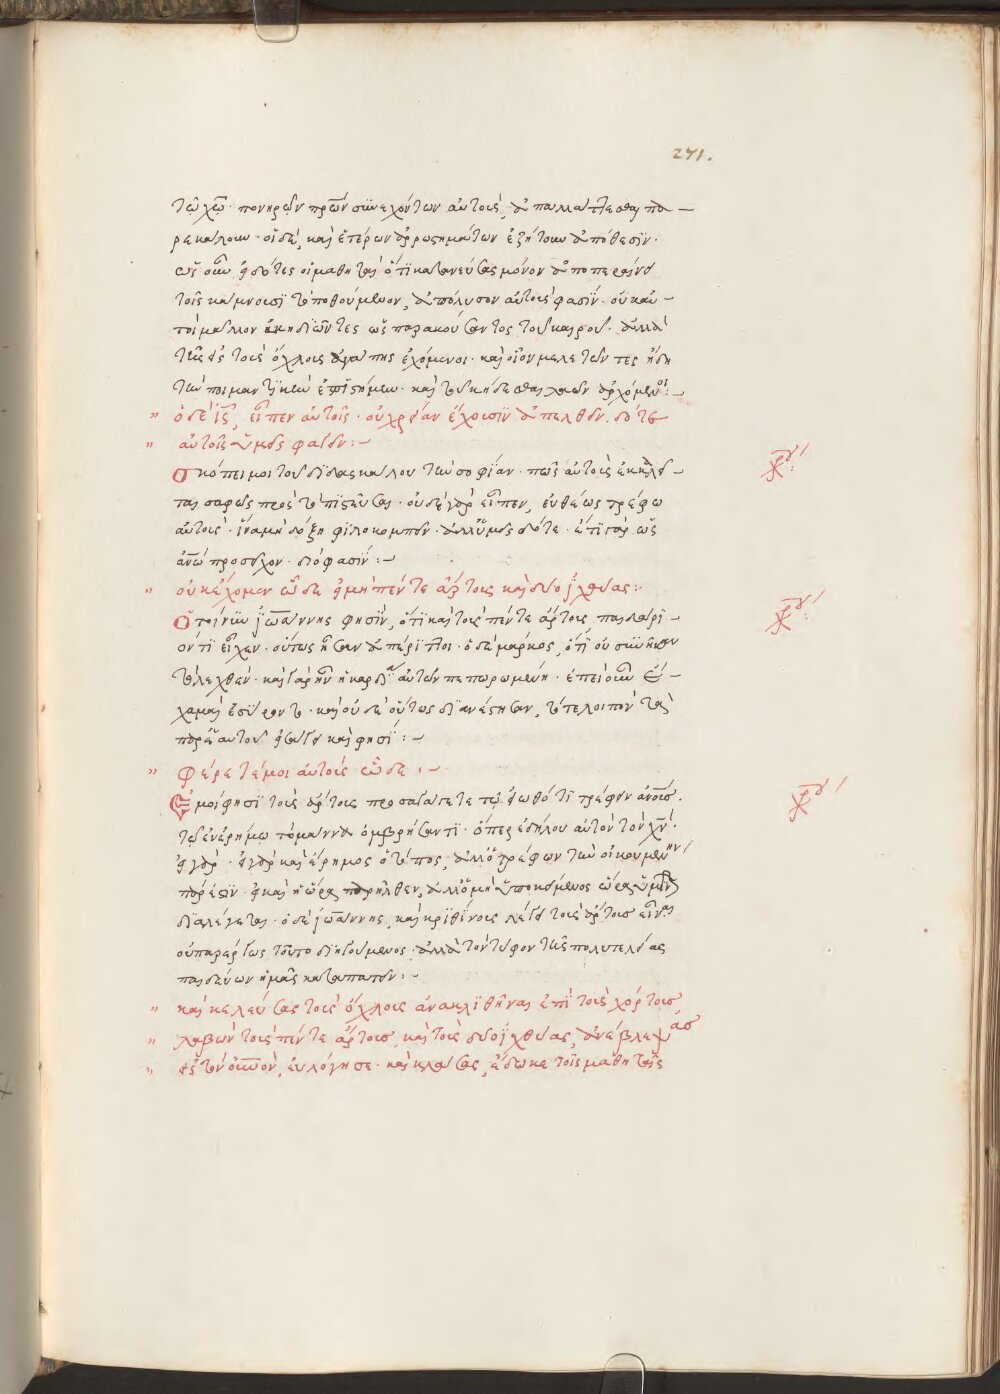 271.
τῶ χῶ· πονηρῶν πρῶν συνεχόντων αὐτοὺς, ἀπαλλάττεσθαι πα
ρεκάλουν· οἱ δὲ, καὶ ἑτέρων ἀρρωστημάτων ἐζήτουν ἀπόθεσιν·
ὡς οὖν εἰδότες οἱ μαθηταὶ ὅτι κατανεύσας μόνον ἀποπεραίνει
τοῖς κάμνουσι τὸ ποθούμενον, ἀπόλυσον αὐτοὺς φασίν· οὐκ αὐ
τοὶ μᾶλλον ἀκηδιῶντες ὡς παρακούσαντος τοῦ καιροῦ· ἀλλὰ
τῆς εἰς τοὺς ὄχλους ἀγάπης ἐχόμενοι· καὶ οἷον μελετῶντες ἤδη
τὴν ποιμαντικὴν ἐπιστήμην· καὶ τὸ κήδεσθαι λαῶν ἀρχόμενοι:
" ὁ δὲ ις, εἶπεν αὐτοῖς· οὐ χρείαν ἔχουσιν ἀπελθεῖν. δότε
" αὐτοῖς ὑμεῖς φαγεῖν:
Σκόπει μοι τοῦ διδασκάλου τὴν σοφίαν· πῶς αὐτοὺς ἐκκαλεῖ
ται σαφῶς πρὸς τὸ πιστεῦσαι· οὐδὲ γὰρ εἶπεν, εὐθέως τρέφω
αὐτούς· ἵνα μὴ δόξη φιλοκομπεῖν· ἀλλ' ὑμεῖς δότε· ἔτι γὰρ ὡς
ἀνῶ προσεῖχον· διό φασίν:
" οὐκ ἔχομεν ὧδε εἰ μὴ πέντε ἄρτους καὶ δύο ἰχθύας:
Ὁ τοίνυν ἰωάννης φησὶν, ὅτι καὶ τοὺς πέντε ἄρτους, παιδάρι
όν τι εἶχεν· οὕτως ἦσαν ἀπέριττοι· ὁ δὲ μάρκος, ὅτι οὐ συνῆκαν
τὸ λεχθέν· καὶ γὰρ ἦν ἡ καρδία αὐτῶν πεπωρωμένη· ἐπεὶ οὖν ἔτι
χαμαὶ ἐσύροντο· καὶ οὐδὲ οὕτως διανέστησαν, τότε λοιπὸν τὰ
παρ' ἑαυτοῦ εἰσάγει καὶ φησί:
" φέρετέ μοι αὐτοὺς ὧδε:
Ἐμοί φησι τοὺς ἄρτους προσαγάγετε τῶ εἰωθότι τρέφειν ἀνους·
τῶ ἐν ἐρήμω τὸ μάννα ὀμβρήσαντι· ὅπερ ἐδήλου αὐτὸν τὸν χν·
εἰ γὰρ· εἰ γὰρ καὶ ἔρημος ὁ τόπος, ἀλλ' ὁ τρέφων τὴν οἰκουμένην
πάρεστιν· εἰ καὶ ἡ ὥρα παρῆλθεν, ἀλλ' ὁ μὴ ὑποκείμενος ὥρα ὑμῖν
διαλέγεται· ὁ δὲ ἰωάννης, καὶ κριθίνους λέγει τοὺς ἄρτους εἶναι
οὐ παρέργως τοῦτο διηγούμενος· ἀλλὰ τὸν τύφον τῆς πολυτελείας
παιδεύων ἡμᾶς καταπατεῖν:
" καὶ κελεύσας τοὺς ὄχλους ἀνακλιθῆναι ἐπὶ τοὺς χόρτους,
" λαβὼν τοὺς πέντε ἄρτους, καὶ τοὺς δύο ἰχθύας, ἀναβλέψας
" εἰς τὸν οὐνον, εὐλόγησε· καὶ κλάσας, ἔδωκε τοῖς μαθηταῖς